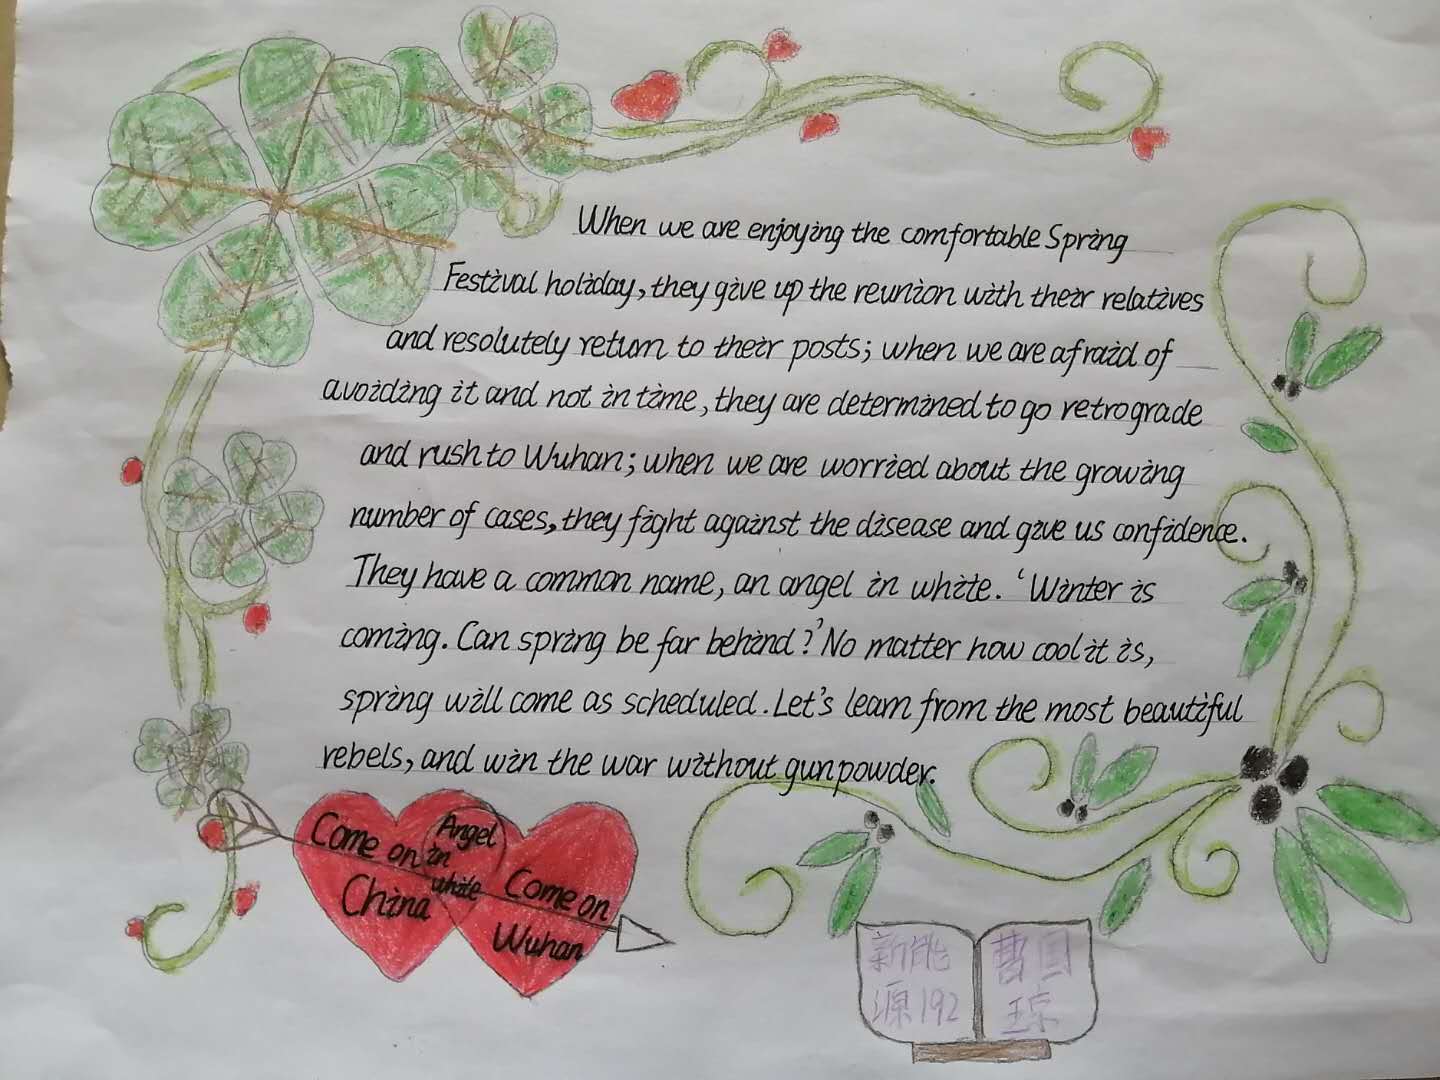 When we are enjoying the comfortable Spring
Festival holiday, they give up the reunion with their relatives
and resolutely return to their posts; when we are afraid of
avoiding it and not in time, they are determined to go retrograde
and rush to Wuhan; when we are worried about the growing
number of cases, they fight against the disease and give us confidence.
They have a common name, an angel in white. ‘Winter is
coming. Can spring be far behind?’ No matter how cool it is,
spring will come as scheduled. Let's learn from the most beautiful
rebels, and win the war without gunpowder.
Come on
China
Angel
in
white
Come on
Wuhan
新能
源192
曹国
琼